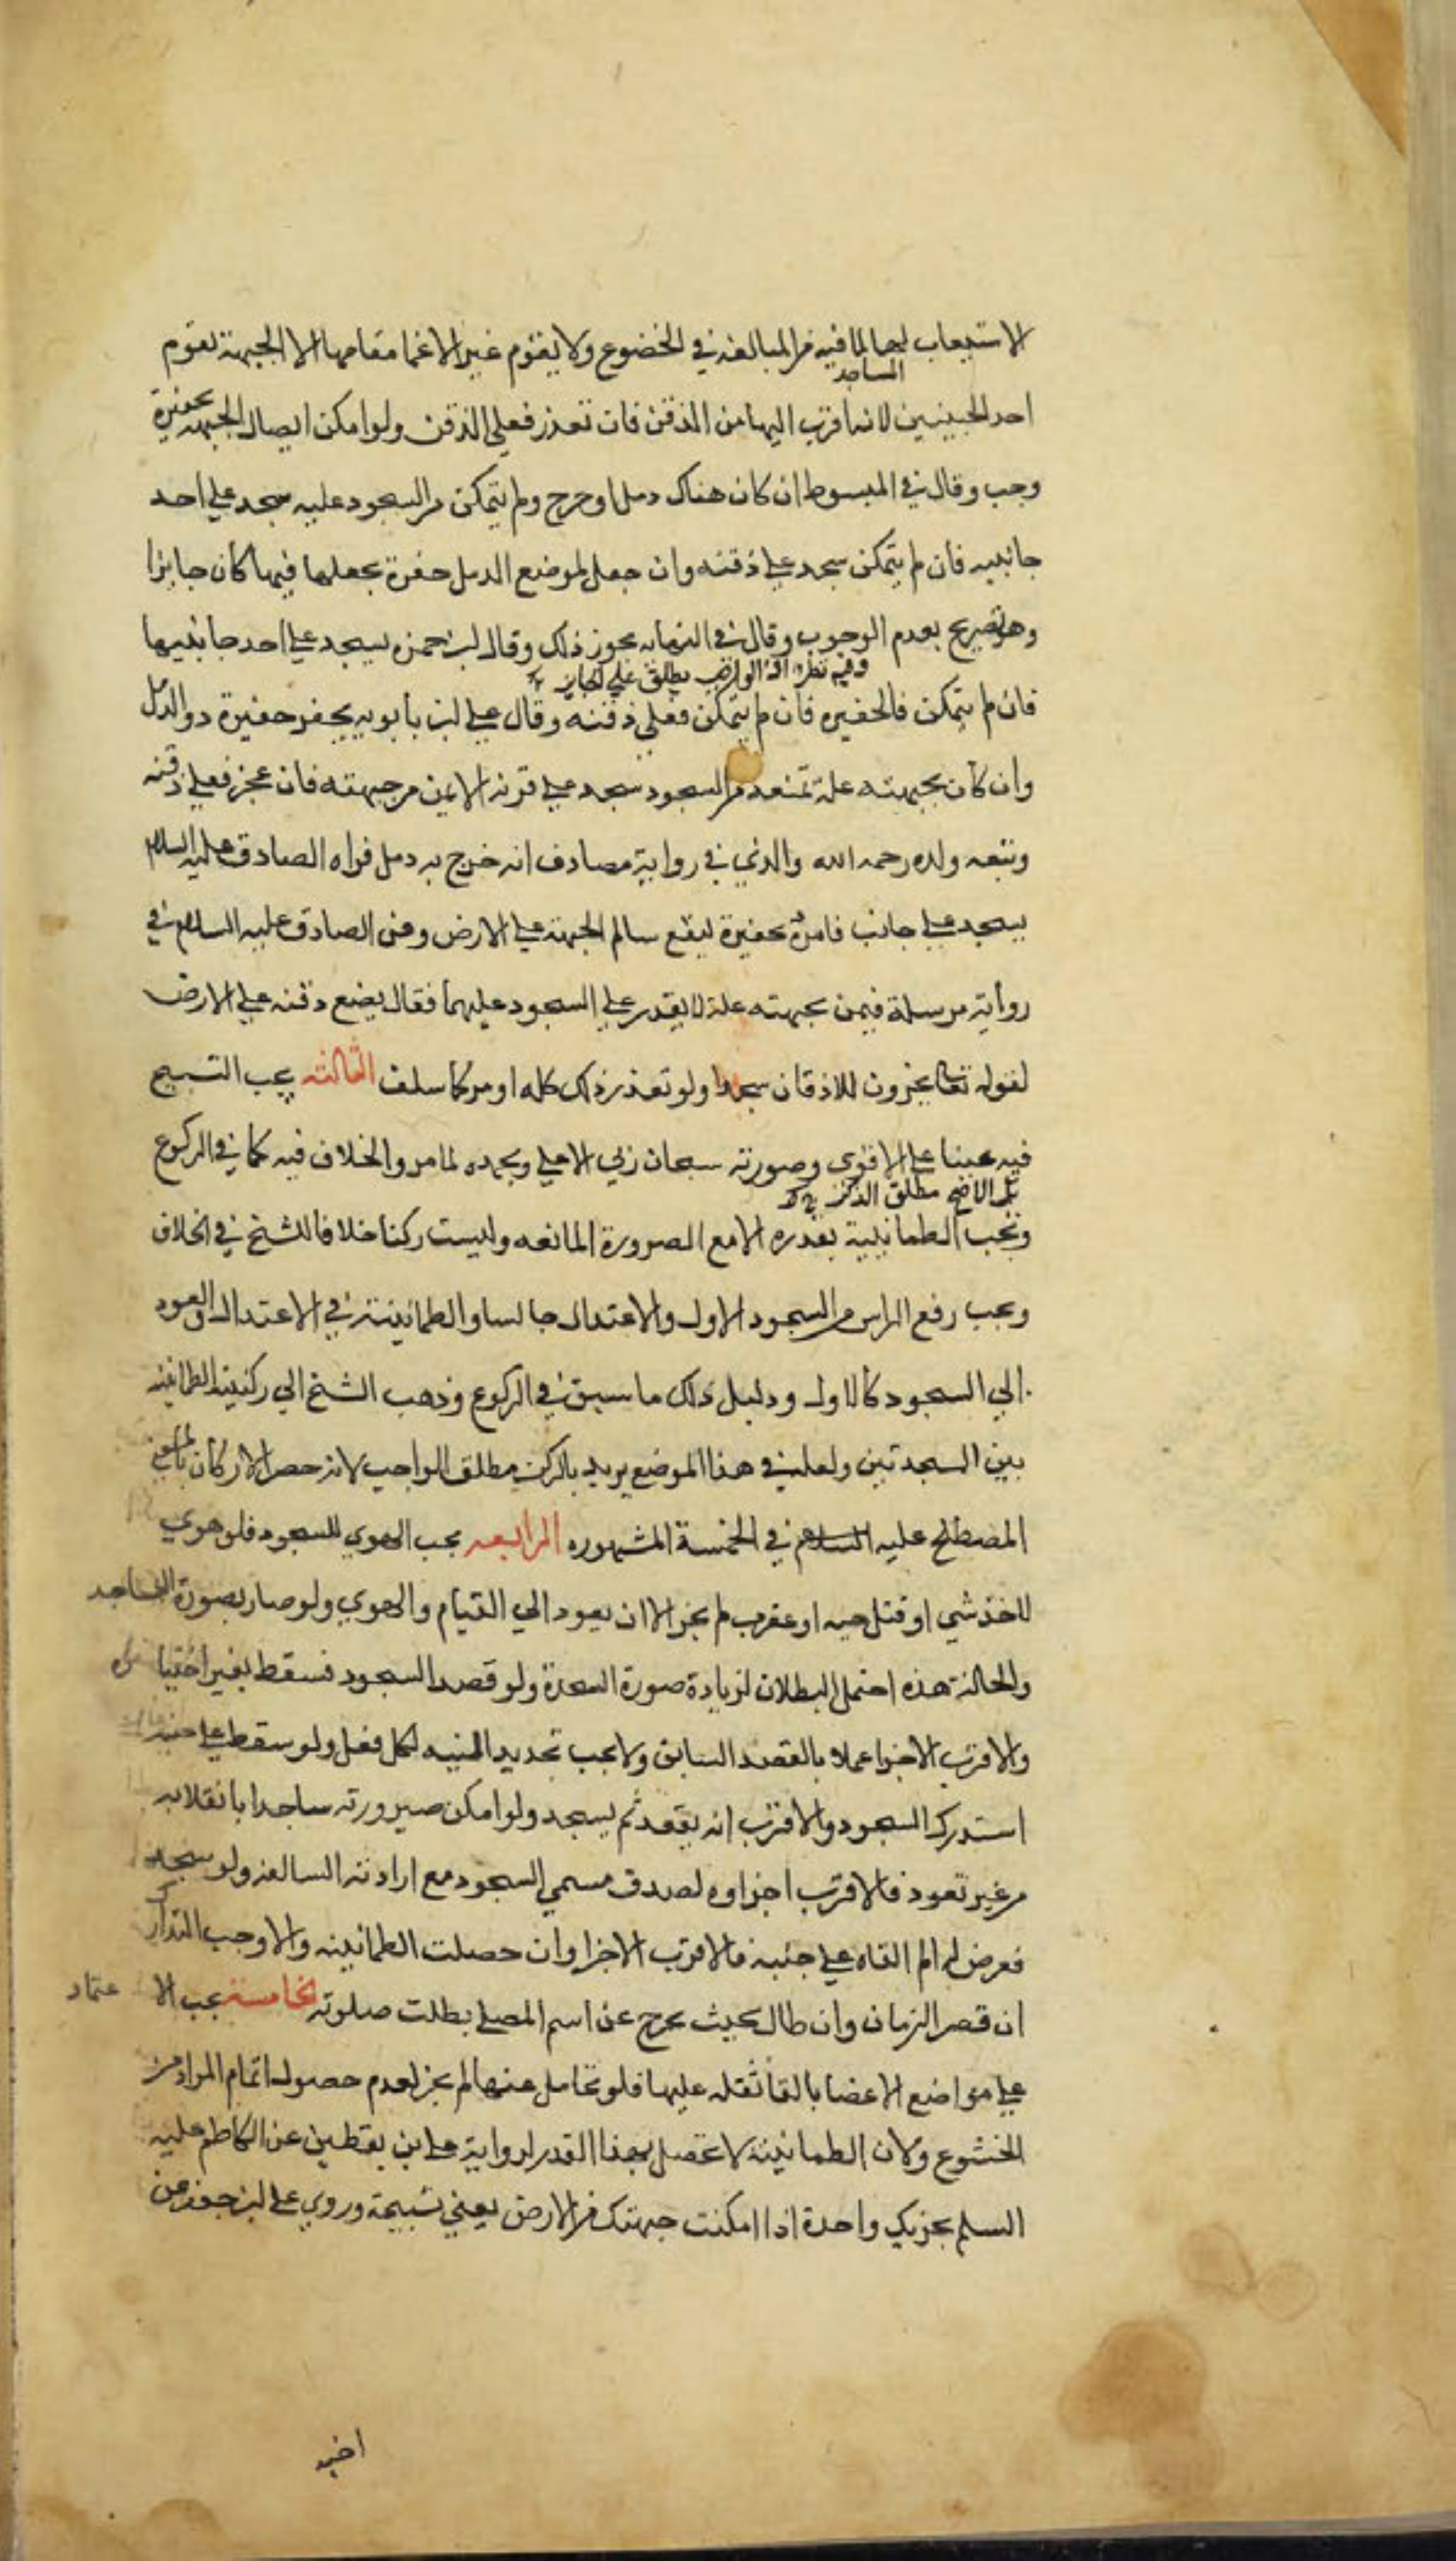 الاستيعاب لها لما فيه من المبالغه في الخضوع ولا يقوم غير الاعضا مقامها الا الجبهة يقوم
المساجد
احد الجبينين لانه اقرب اليها من الذقن فان تعذر فعلى الذقن ولو امكن ايصال الجبهه بحفيرة
وجب وقال في المبسوط ان كان هناك دمل او جرح ولم يتمكن من السجود عليه سجد على احد
جانبيه فان لم يتمكن سجد على ذقنه وان جعل لموضع الدمل حفرة يجعلها فيها كان جايزا
وهو تصريح بعدم الوجوب وقال في النهايه يجوز ذلك وقال ابن حمزه يسجد على احد جانبيها
وفيه نظر الواجب يطلق على الجايز
فان لم يتمكن فالحفيره فان لم يتمكن فعلى ذقنه وقال على ابن بابويه يحفر حفيرة ذو الدمل
وان كان بجبهته علة تمنعه من السجود سجد على قرنه الايمن من جبهته فان عجز فعلى ذقنه
وتبعه ولده رحمه الله والذي في رواية مصادف انه خرج به دمل فراه الصادق عليه السلام
يسجد على جانب فامره بحفيرة ليقع سالم الجبهة على الارض وعن الصادق عليه السلام في
رواية مرسلة فيمن بجبهته علة لا يقدر على السجود عليها فقال يضع ذقنه على الارض
لقوله تعالى يخرون للاذقان سجدا ولو تعذر ذلك كله اومى كما سلف الثالثه يجب التسبيح
فيه عينا على الاقوى وصورته سبحان ربي الاعلى وبحمده لما مر والخلاف فيه كما في الركوع
بل الاصح مطلق الذكر
وتجب الطمانينة بقدره الا مع الضرورة المانعه وليست ركنا خلافا للشيخ في الخلاف
ويجب رفع الراس من السجود الاول والاعتدال جالسا والطمانينة في الاعتدال والعود
الى السجود كالاول ودليل ذلك ما سبق في الركوع وذهب الشيخ الى ركنية الطمانينه
بين السجدتين ولعله في هذا الموضع يريد بالركن مطلق الواجب لانه حصر الاركان بالمعنى
المصطلح عليه السلام في الخمسة المشهوره الرابعه يجب الهوي للسجود فلو هوى
لاخذ شي او قتل حيه او عقرب لم يجز الا ان يعود الى القيام والهوي ولو صار بصورة الساجد
والحالة هذه احتمل البطلان لزيادة صورة السجدة ولو قصد السجود فسقط بغير اختياره
والاقرب الاجزا عملا بالقصد السابق ولا يجب تجديد النيه لكل فعل ولو سقط على جنبه
استدرك السجود والاقرب انه يقعد ثم يسجد ولو امكن صيرورته ساجدا بانقلابه
من غير قعود فالاقرب اجزاوه لصدق مسمى السجود مع ارادته السالفه ولو سجد
فعرض له الم القاه على جنبه فالاقرب الاجزا وان حصلت الطمانينه والا وجب التدارك
ان قصر الزمان وان طال بحيث يخرج عن اسم المصلى بطلت صلوته الخامسة يجب الاعتماد
على مواضع الاعضا بالقا ثقله عليها فلو تحامل عنها لم يجز لعدم حصول اتمام المراد من
الخشوع ولان الطمانينة لا تحصل بهذا القدر لرواية على بن يقطين عن الكاظم عليه
السلم يجزيك واحدة اذا امكنت جبهتك من الارض يعني تسبيحة وروى على ابن جعفر عن
اخيه